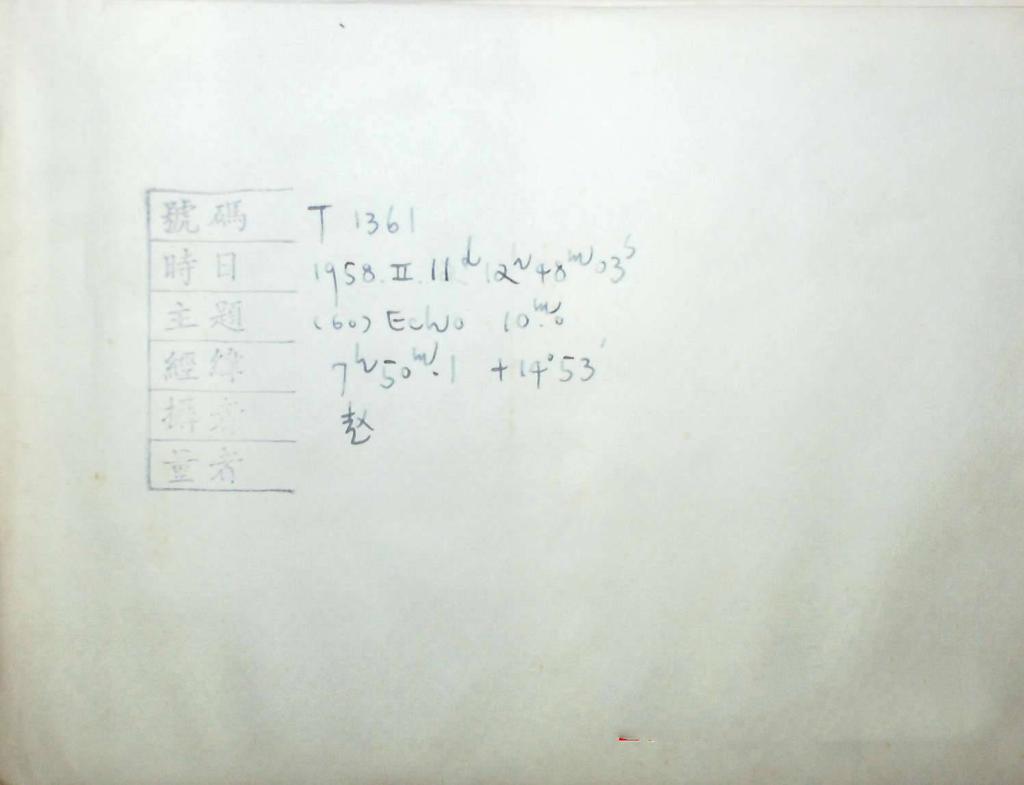 號碼 T 1361
時日 1958.II.11ᵈ12ʰ48ᵐ03ˢ
主題 (60) Echo 10ᵐ.0
經緯 7ʰ50ᵐ.1 +14°53′
攝者 赵
量者